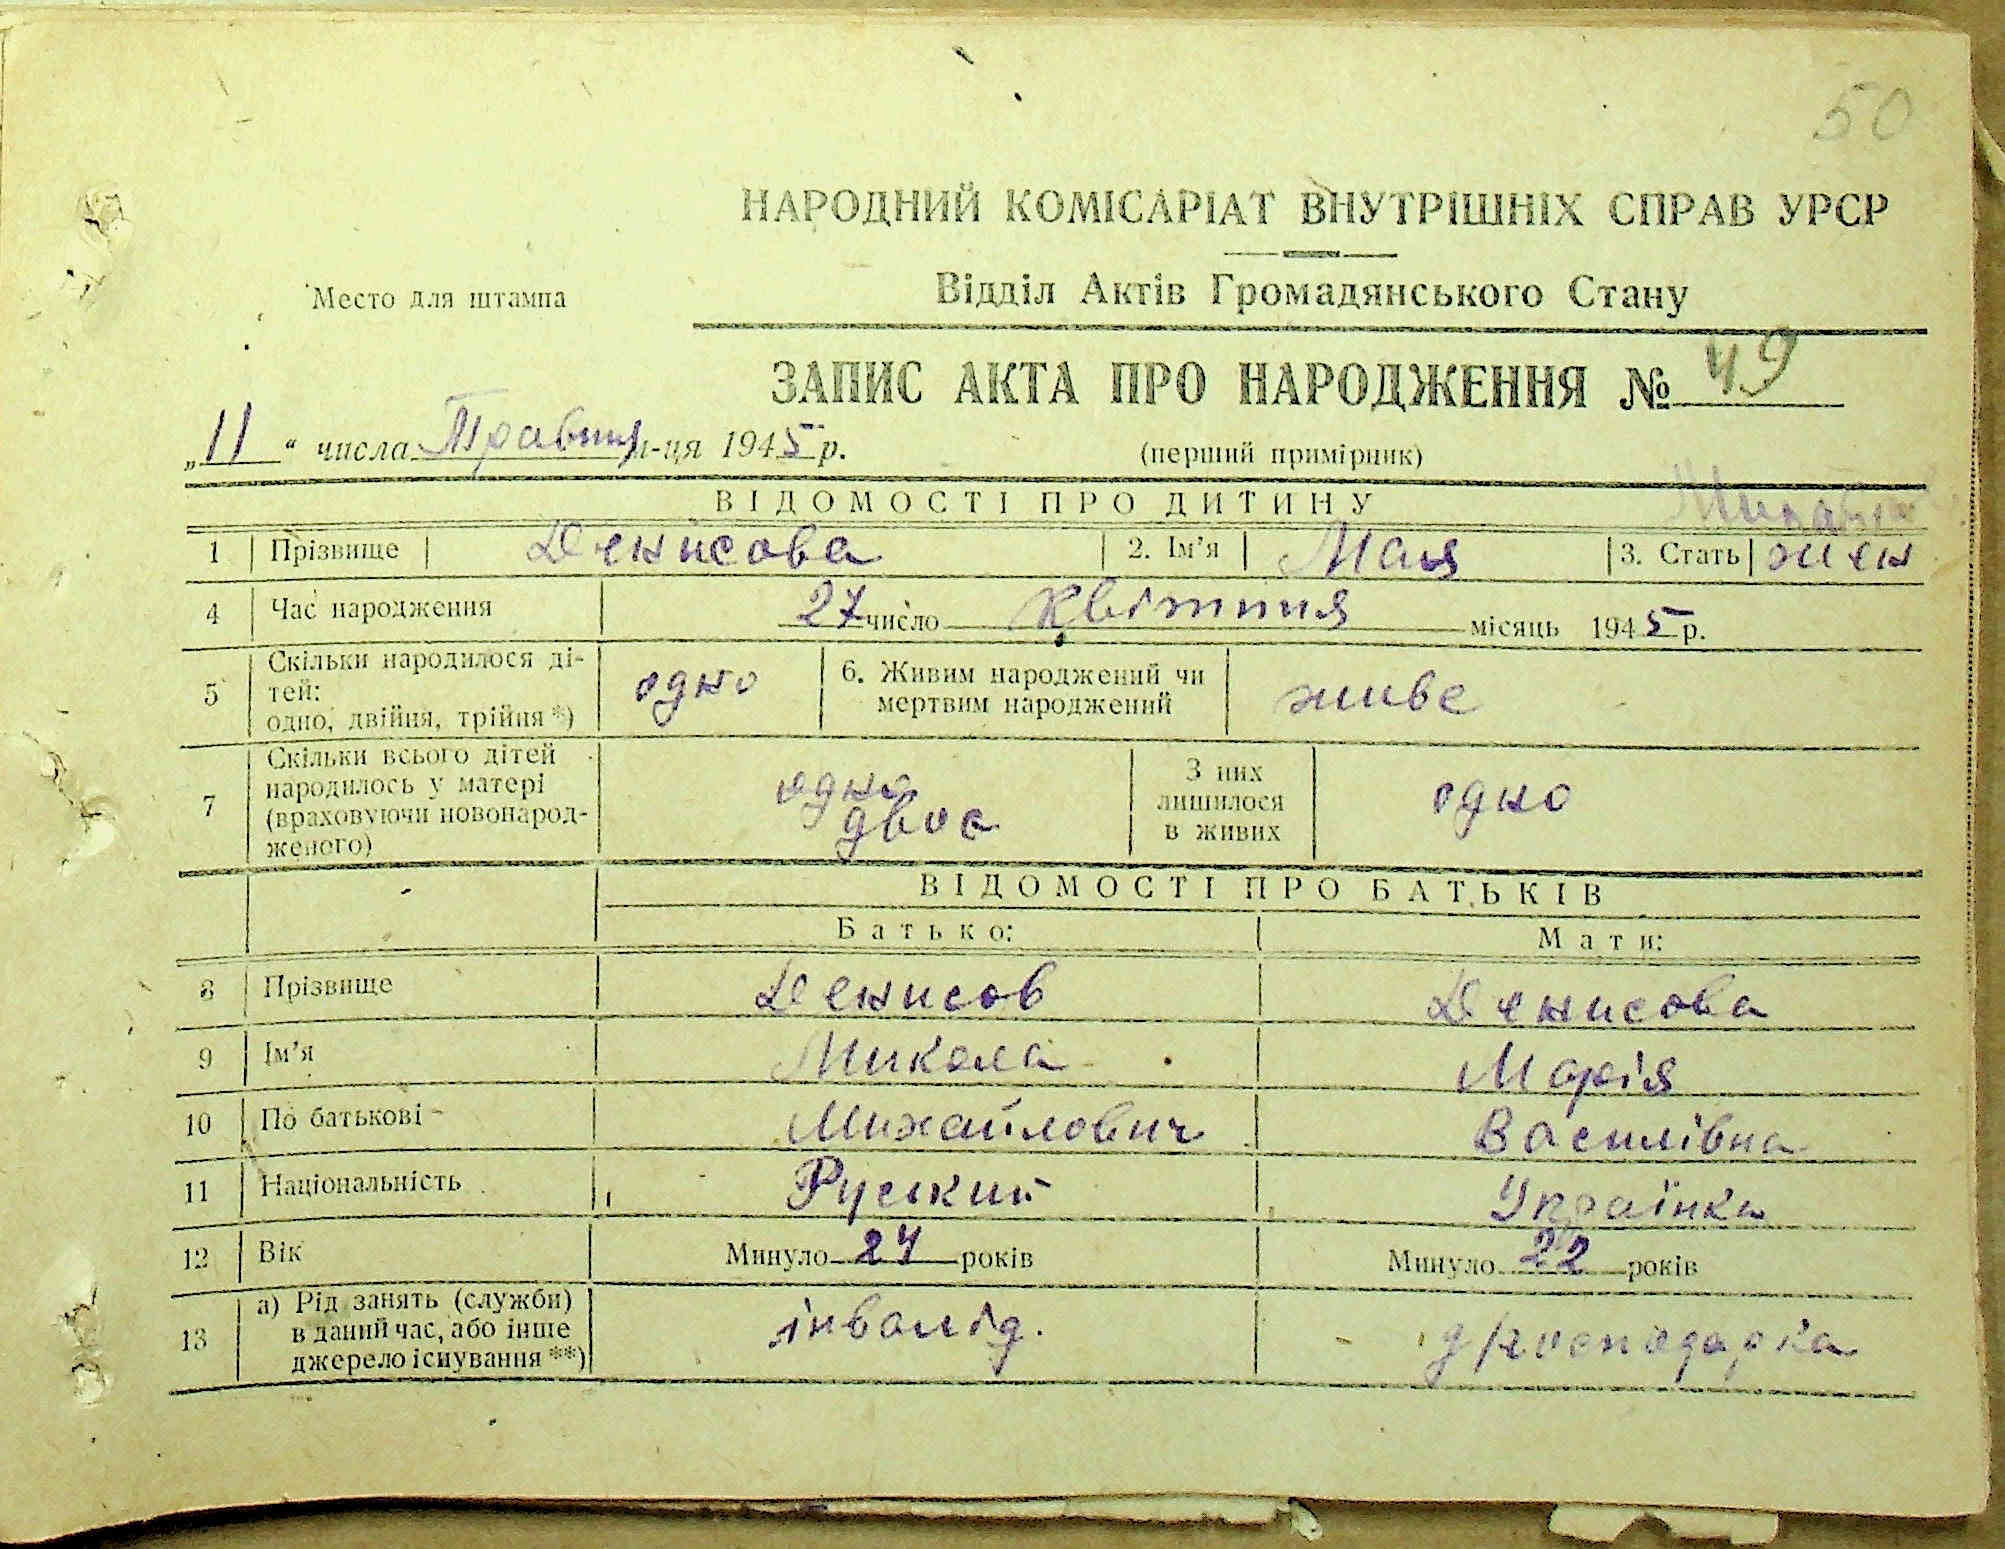 50
НАРОДНИЙ КОМІСАРІАТ ВНУТРІШНІХ СПРАВ УРСР
Место для штампа
Відділ Актів Громадянського Стану
ЗАПИС АКТА ПРО НАРОДЖЕННЯ № 49
„11“ числа Травня м-ця 1945 р.
(перший примірник)
ВІДОМОСТІ ПРО ДИТИНУ
1 Прізвище Денисова 2. Ім'я Мая 3. Стать жен
4 Час народження 27 число Квітня місяць 1945 р.
5 Скільки народилося ді-
тей:
одно, двійня, трійня *) одно 6. Живим народжений чи
мертвим народжений живе
7 Скільки всього дітей
народилось у матері
(враховуючи новонарод-
женого) одно
двоє
З них
лишилося
в живих одно
ВІДОМОСТІ ПРО БАТЬКІВ
Батько: Мати:
8 Прізвище Денисов Денисова
9 Ім'я Микола Марія
10 По батькові Михайлович Василівна
11 Національність Руський Українка
12 Вік Минуло 24 років Минуло 22 років
13 а) Рід занять (служби)
в даний час, або інше
джерело існування **) інвалід.